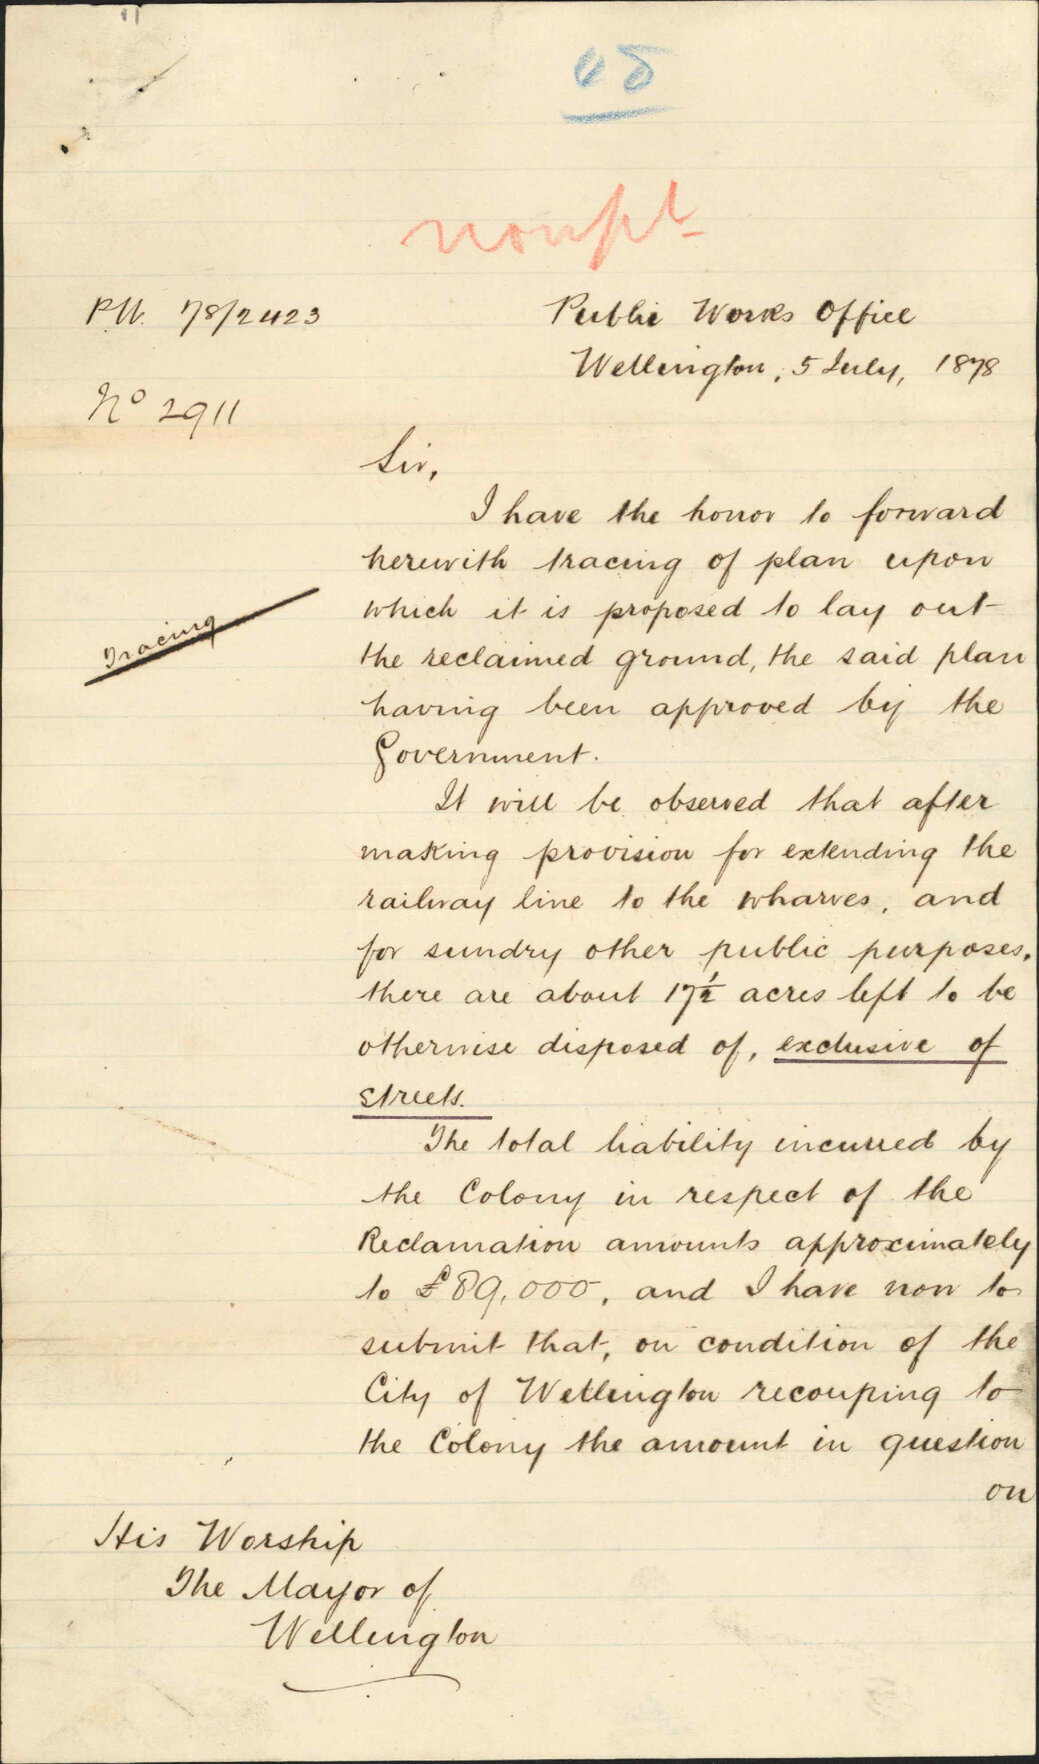 P.W. 78/2423
Public Works Office
Wellington, 5 July, 1878
No 2911
Sir,
I have the honor to forward
herewith tracing of plan upon
which it is proposed to lay out
Tracing
the reclaimed ground, the said plan
having been approved by the
Government.
It will be observed that after
making provision for extending the
railway line to the wharves, and
for sundry other public purposes,
there are about 17½ acres left to be
otherwise disposed of, exclusive of
streets.
The total liability incurred by
the Colony in respect of the
Reclamation amounts approximately
to £89,000, and I have now to
submit that, on condition of the
City of Wellington recouping to
the Colony the amount in question
on
His Worship
The Mayor of
Wellington